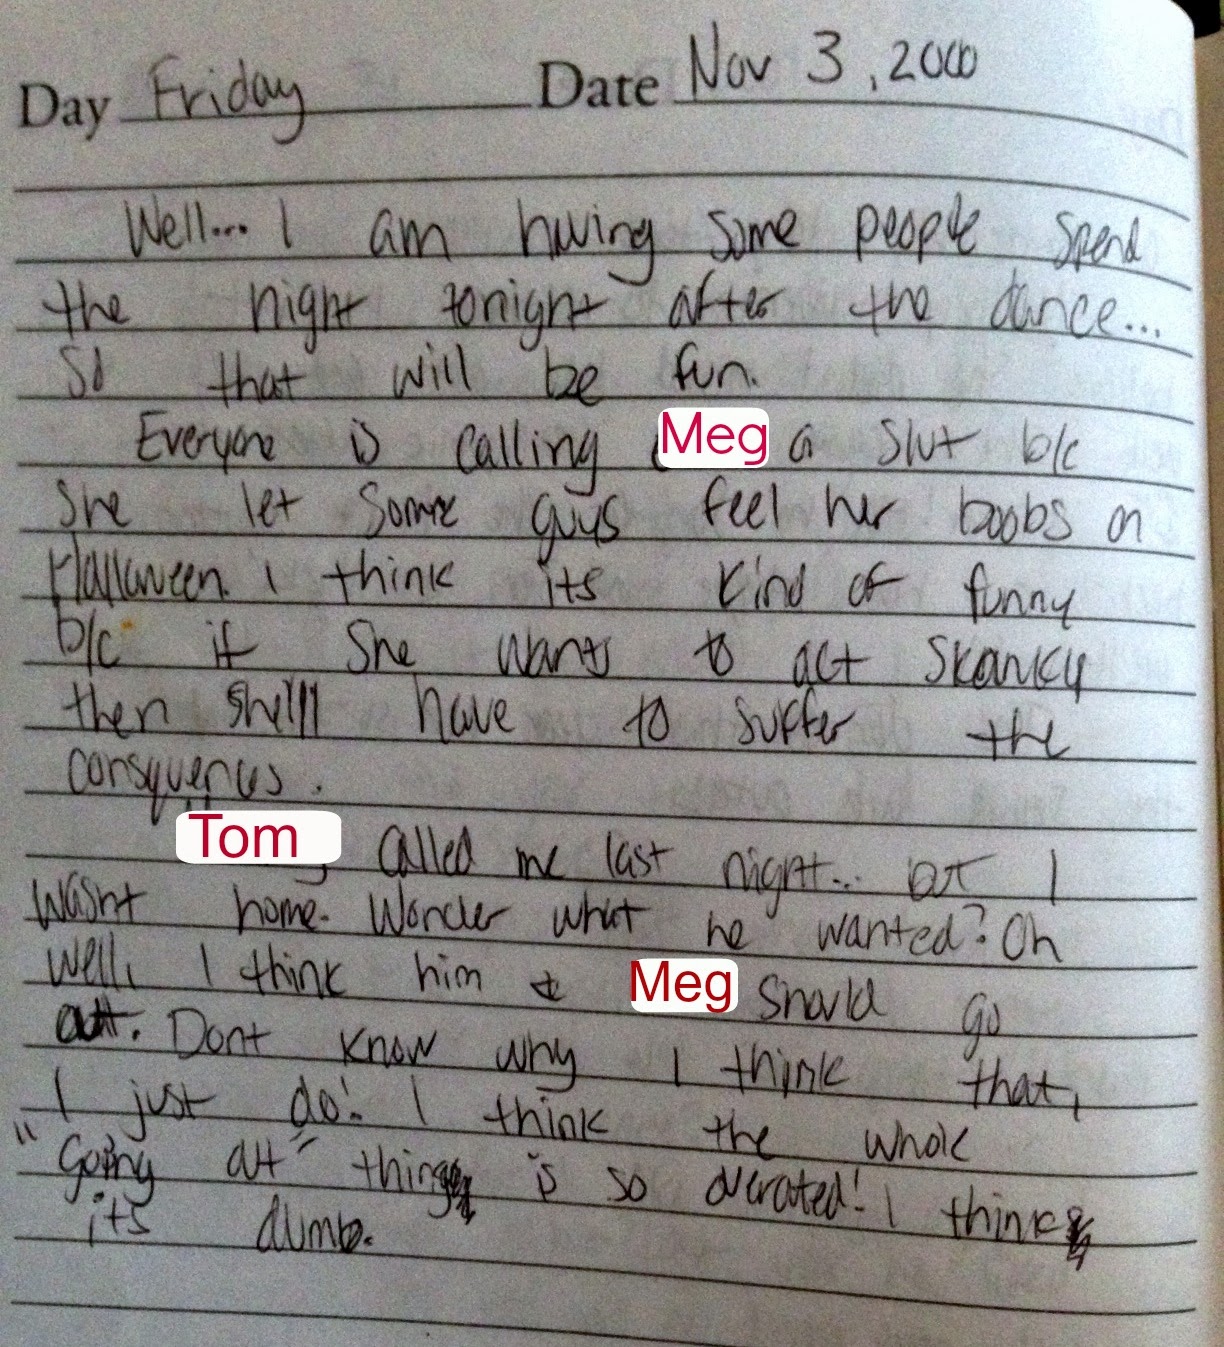 Day Friday Date Nov 3, 2000
Well... I am having some people spend
the night tonight after the dance...
So that will be fun.
Everyone is calling Meg a slut b/c
she let some guys feel her boobs on
Halloween. I think its kind of funny
b/c if she wants to act skanky
then she'll have to suffer the
consquences.
Tom called me last night... but I
wasnt home. Wonder what he wanted? Oh
well, I think him & Meg should go
out. Dont know why I think that,
I just do! I think the whole
"Going out" thing is so overated! I think
its dumb.